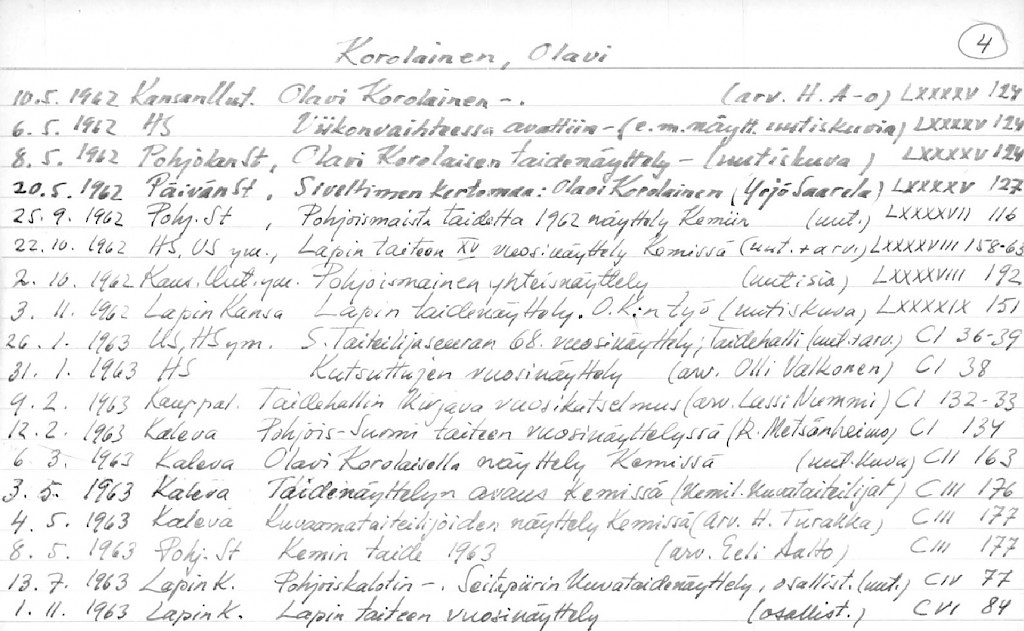 4
Korolainen, Olavi
10.5. 1962 Kansan Uut. Olavi Korolainen -. (arv. H. A-o) LXXXXV 124
6. 5. 1962 HS Viikonvaihteessa avattiin - (e.m. näytt. uutiskuvia) LXXXXV 124
8. 5. 1962 Pohjolan St, Olavi Korolaisen taidenäyttely - (uutiskuva) LXXXXV 124
20.5. 1962 Päivän St, Siveltimen kertomaa: Olavi Korolainen (Yrjö Saarela) LXXXXV 127
25. 9. 1962 Pohj. St, Pohjoismaista taidetta 1962 näyttely Kemiin (uut.) LXXXXVII 116
22. 10. 1962 HS, US ym., Lapin taiteen XV vuosinäyttely Kemissä (uut. + arv.) LXXXXVIII 158-63
2. 10. 1962 Kans. Uut. ym. Pohjoismainen yhteisnäyttely (uutisia) LXXXXVIII 192
3. 11. 1962 Lapin Kansa Lapin taidenäyttely. O.K:n työ (uutiskuva) LXXXXIX 151
26. 1. 1963 US, HS ym. S. Taiteilijaseuran 68. vuosinäyttely; Taidehalli (uut. + arv.) CI 36-39
31. 1. 1963 HS Kutsuttujen vuosinäyttely (arv. Olli Valkonen) CI 38
9. 2. 1963 Kauppal. Taidehallin kirjava vuosikatselmus (arv. Lassi Nummi) CI 132-33
12. 2. 1963 Kaleva Pohjois-Suomi taiteen vuosinäyttelyssä (R. Metsänheimo) CI 134
6. 3. 1963 Kaleva Olavi Korolaisella näyttely Kemissä (uut. kuva) CII 163
3. 5. 1963 Kaleva Taidenäyttelyn avaus Kemissä (Kemil. kuvataiteilijat) CIII 176
4. 5. 1963 Kaleva Kuvaamataiteilijöiden näyttely Kemissä (arv. H. Turakka) CIII 177
8. 5. 1963 Pohj. St Kemin taide 1963 (arv. Eeli Aalto) CIII 177
13. 7. 1963 Lapin K. Pohjoiskalotin -. Seitapiirin kuvataidenäyttely, osallist. (uut.) CIV 77
1. 11. 1963 Lapin K. Lapin taiteen vuosinäyttely (osallist.) CVI 84